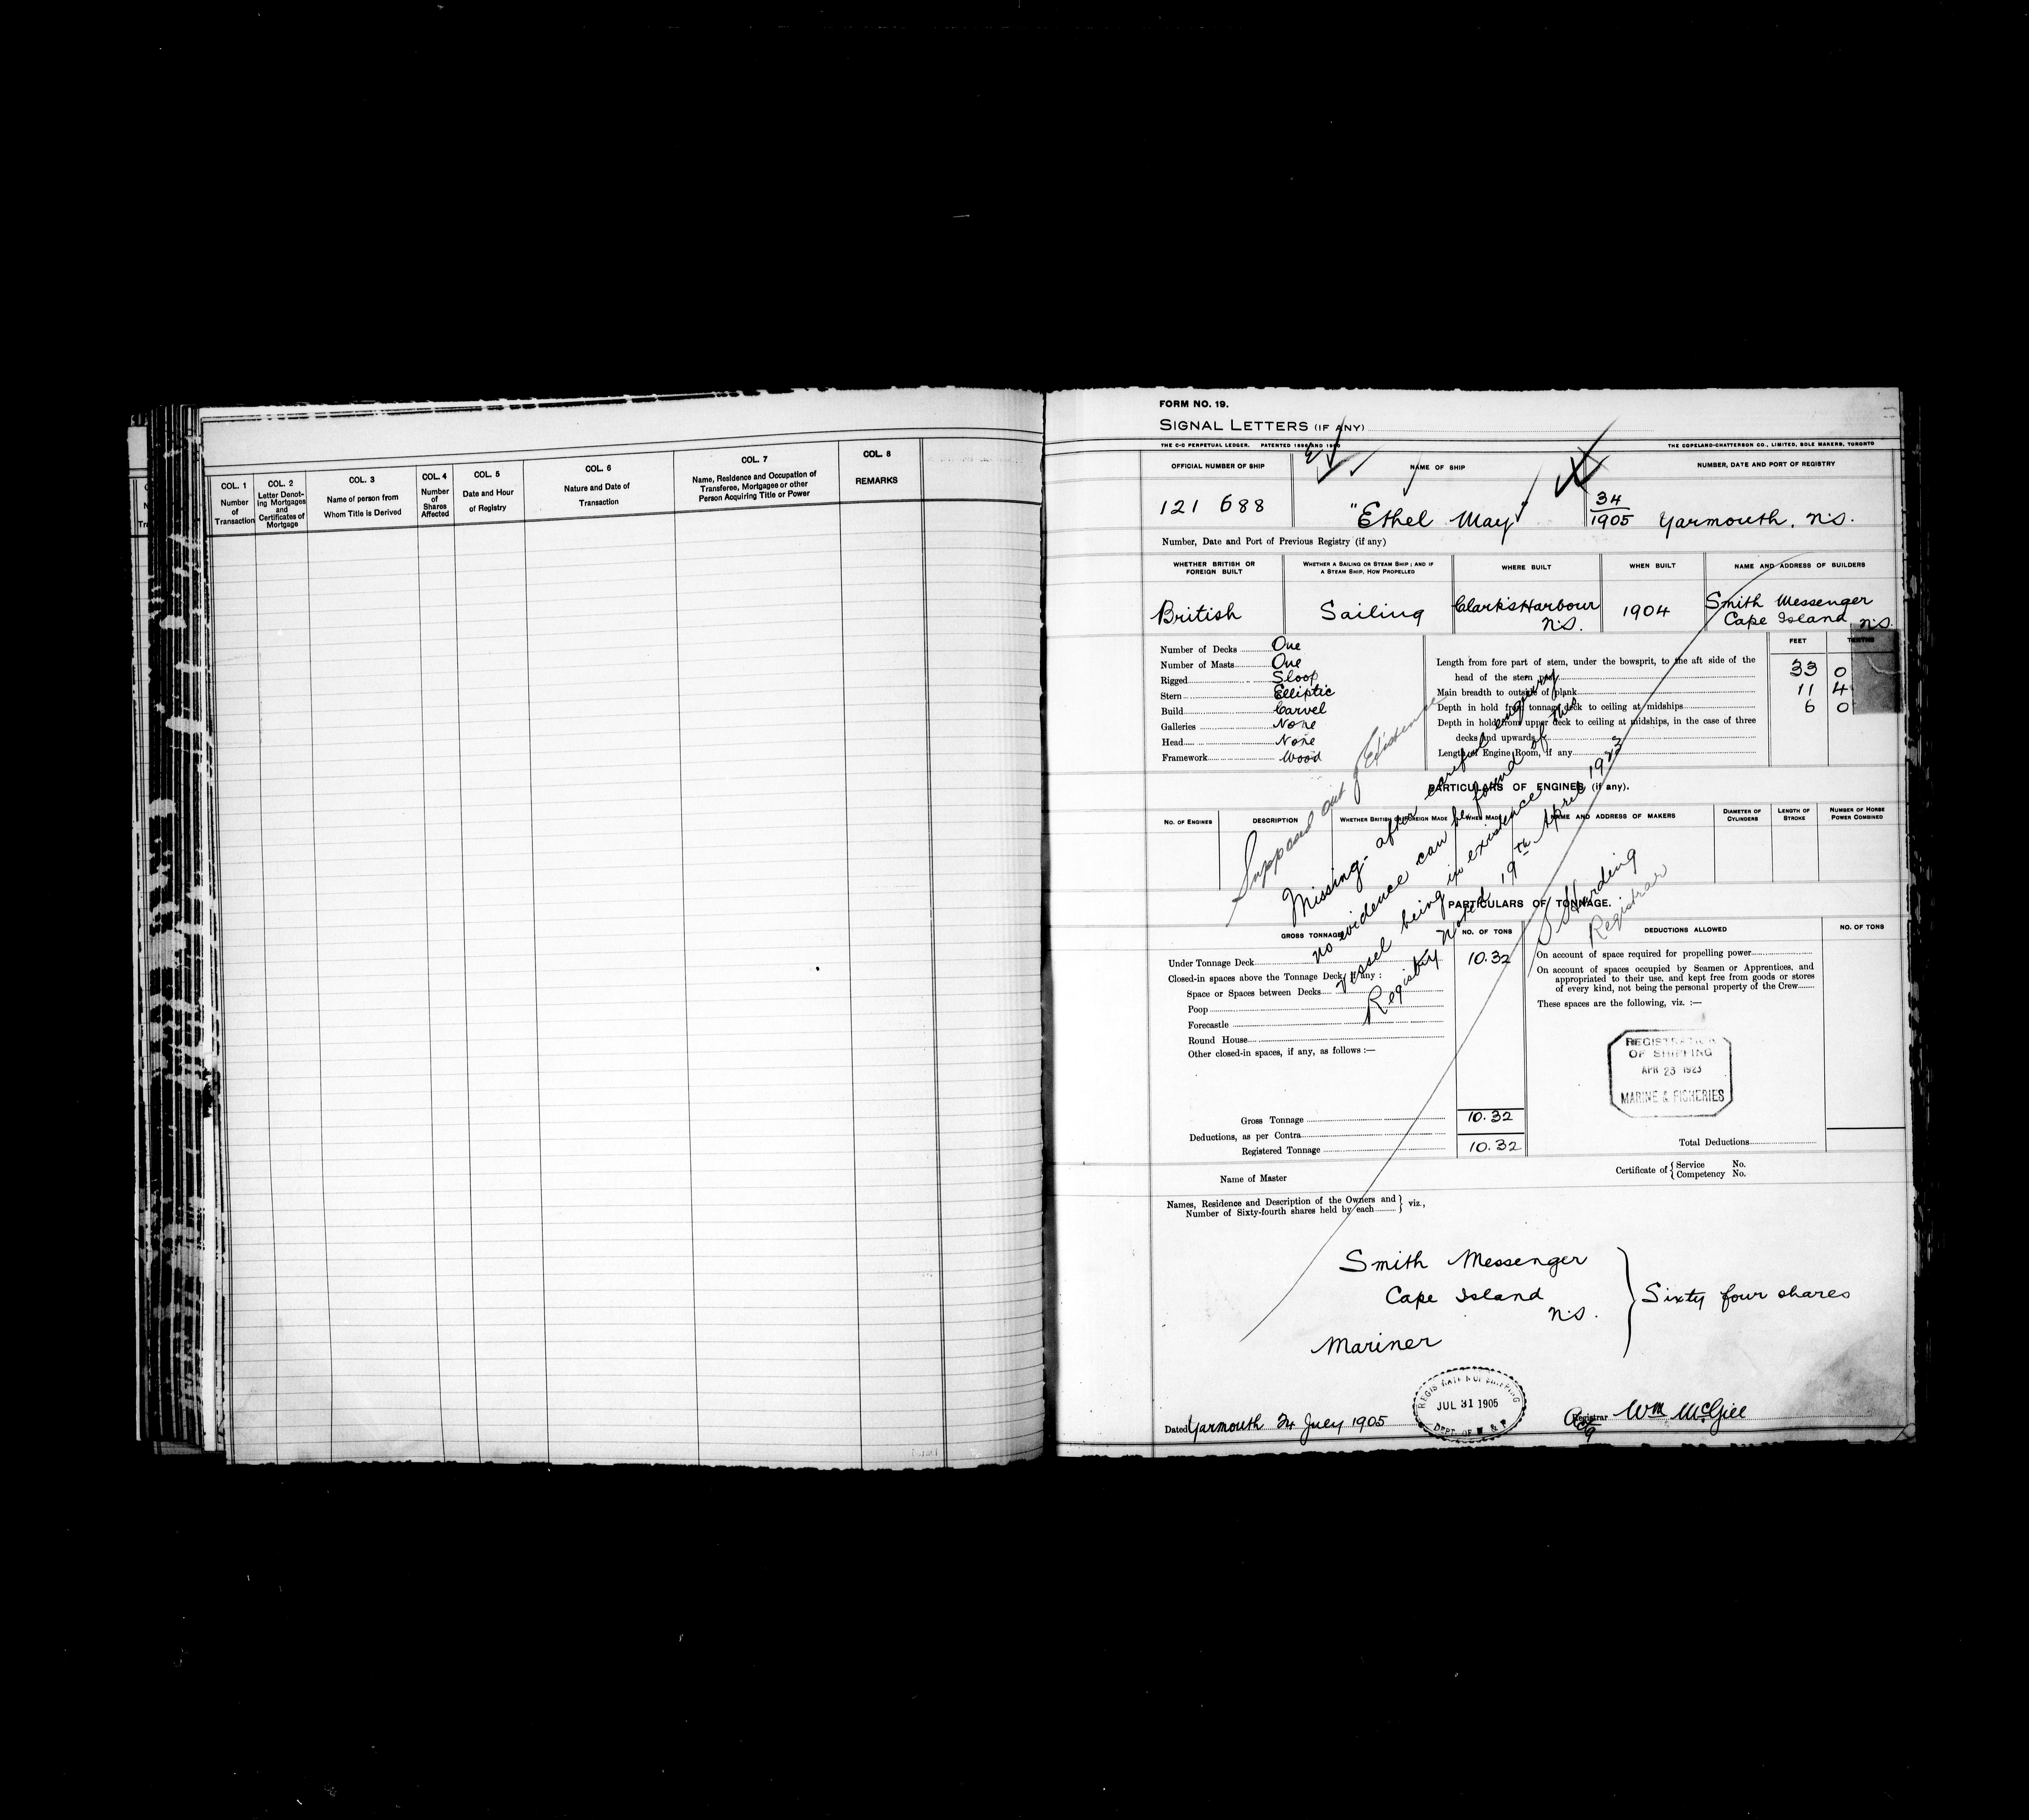 COL. 1
Number
of
Transaction
COL. 2
Letter Denot-
ing Mortgages
and
Certificates of
Mortgage
COL. 3
Name of person from
Whom Title is Derived
COL. 4
Number
of
Shares
Affected
COL. 5
Date and Hour
of Registry
COL. 6
Nature and Date of
Transaction
COL. 7
Name, Residence and Occupation of
Transferee, Mortgagee or other
Person Acquiring Title or Power
COL. 8
REMARKS
FORM NO. 19.
SIGNAL LETTERS (IF ANY)
THE C-C PERPETUAL LEDGER. PATENTED
THE COPELAND-CHATTERSON CO., LIMITED, SOLE MAKERS, TORONTO
OFFICIAL NUMBER OF SHIP
NAME OF SHIP
NUMBER, DATE AND PORT OF REGISTRY
121 688
"Ethel May"
34
1905 Yarmouth. N.S.
Number, Date and Port of Previous Registry (if any)
WHETHER BRITISH OR
FOREIGN BUILT
WHETHER A SAILING OR STEAM SHIP; AND IF
A STEAM SHIP, HOW PROPELLED
WHERE BUILT
WHEN BUILT
NAME AND ADDRESS OF BUILDERS
British
Sailing
Clark's Harbour
N.S.
1904
Smith Messenger
Cape Island N.S.
Number of Decks One
Number of Masts One
Rigged Sloop
Stern Elliptic
Build Carvel
Galleries None
Head None
Framework Wood
FEET
TENTHS
Length from fore part of stem, under the bowsprit, to the aft side of the
head of the stern post 33 0
Main breadth to outside of plank 11 4
Depth in hold from tonnage deck to ceiling at midships 6 0
Depth in hold from upper deck to ceiling at midships, in the case of three
decks and upwards
Length of Engine Room, if any
PARTICULARS OF ENGINES (if any).
NO. OF ENGINES
DESCRIPTION
WHETHER BRITISH OR FOREIGN MADE
WHEN MADE
NAME AND ADDRESS OF MAKERS
DIAMETER OF
CYLINDERS
LENGTH OF
STROKE
NUMBER OF HORSE
POWER COMBINED
Supposed out of Existence
Missing - after careful enquiry
no evidence can be found of this
vessel being in existence
Registry noted 19th April 1923
Harding
Registrar
PARTICULARS OF TONNAGE.
GROSS TONNAGE
NO. OF TONS
DEDUCTIONS ALLOWED
NO. OF TONS
Under Tonnage Deck 10.32
Closed-in spaces above the Tonnage Deck, if any :
Space or Spaces between Decks
Poop
Forecastle
Round House
Other closed-in spaces, if any, as follows :—
Gross Tonnage 10.32
Deductions, as per Contra
Registered Tonnage 10.32
On account of space required for propelling power
On account of spaces occupied by Seamen or Apprentices, and
appropriated to their use, and kept free from goods or stores
of every kind, not being the personal property of the Crew
These spaces are the following, viz. :—
REGISTRATION
OF SHIPPING
APR 23 1923
MARINE & FISHERIES
Total Deductions
Name of Master
Certificate of { Service No.
Competency No.
Names, Residence and Description of the Owners and
Number of Sixty-fourth shares held by each } viz.,
Smith Messenger
Cape Island
N.S.
Mariner
Sixty four shares
REGISTRATION OF SHIPPING
JUL 31 1905
DEPT. OF M & F
Dated Yarmouth 24 July 1905
Registrar Wm McGill
Actg